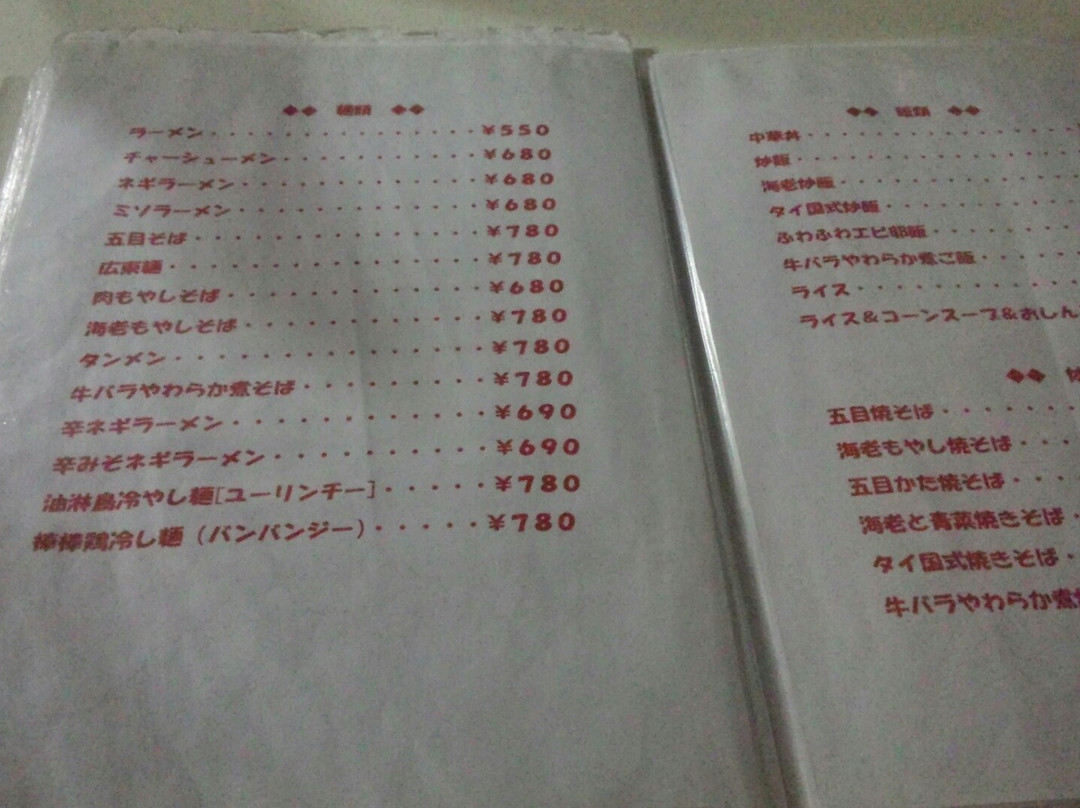 ◆◆ 麺類 ◆◆
ラーメン・・・・・・・・・・・・・・・・・¥550
チャーシューメン・・・・・・・・・・・・¥680
ネギラーメン・・・・・・・・・・・・・・・¥680
ミソラーメン・・・・・・・・・・・・・・・¥680
五目そば・・・・・・・・・・・・・・・・・¥780
広東麺・・・・・・・・・・・・・・・・・・¥780
肉もやしそば・・・・・・・・・・・・・・・¥680
海老もやしそば・・・・・・・・・・・・・・¥780
タンメン・・・・・・・・・・・・・・・・・¥780
牛バラやわらか煮そば・・・・・・・・・・¥780
辛ネギラーメン・・・・・・・・・・・・・・¥690
辛みそネギラーメン・・・・・・・・・・・¥690
油淋鳥冷やし麺[ユーリンチー]・・・・・¥780
棒棒鶏冷し麺（バンバンジー）・・・・・¥780
◆◆ 飯類 ◆◆
中華丼・・・・・・・・・・・・・・・
炒飯・・・・・・・・・・・・・・・・
海老炒飯・・・・・・・・・・・・・
タイ国式炒飯・・・・・・・・・・・
ふわふわエビ卵飯・・・・・・・・
牛バラやわらか煮ご飯・・・・・
ライス・・・・・・・・・・・・・
ライス&コーンスープ&おしん
◆◆
五目焼そば・・・・・・・
海老もやし焼そば・・・
五目かた焼そば・・・・
海老と青菜焼きそば・
タイ国式焼きそば・
牛バラやわらか煮